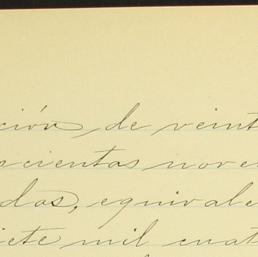 ción, de veint
scientas nove
das, equivale
iete mil cuat